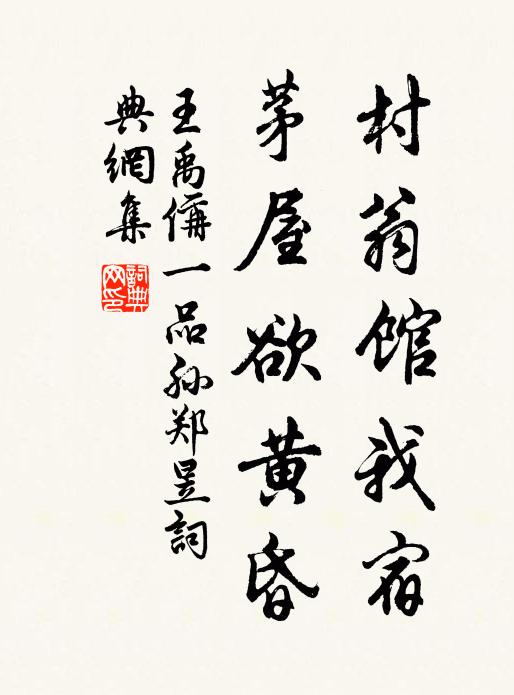 村翁館我宿
茅屋欲黄昏
王禹偁一品孙郑昱詞
典網集
詞典网印